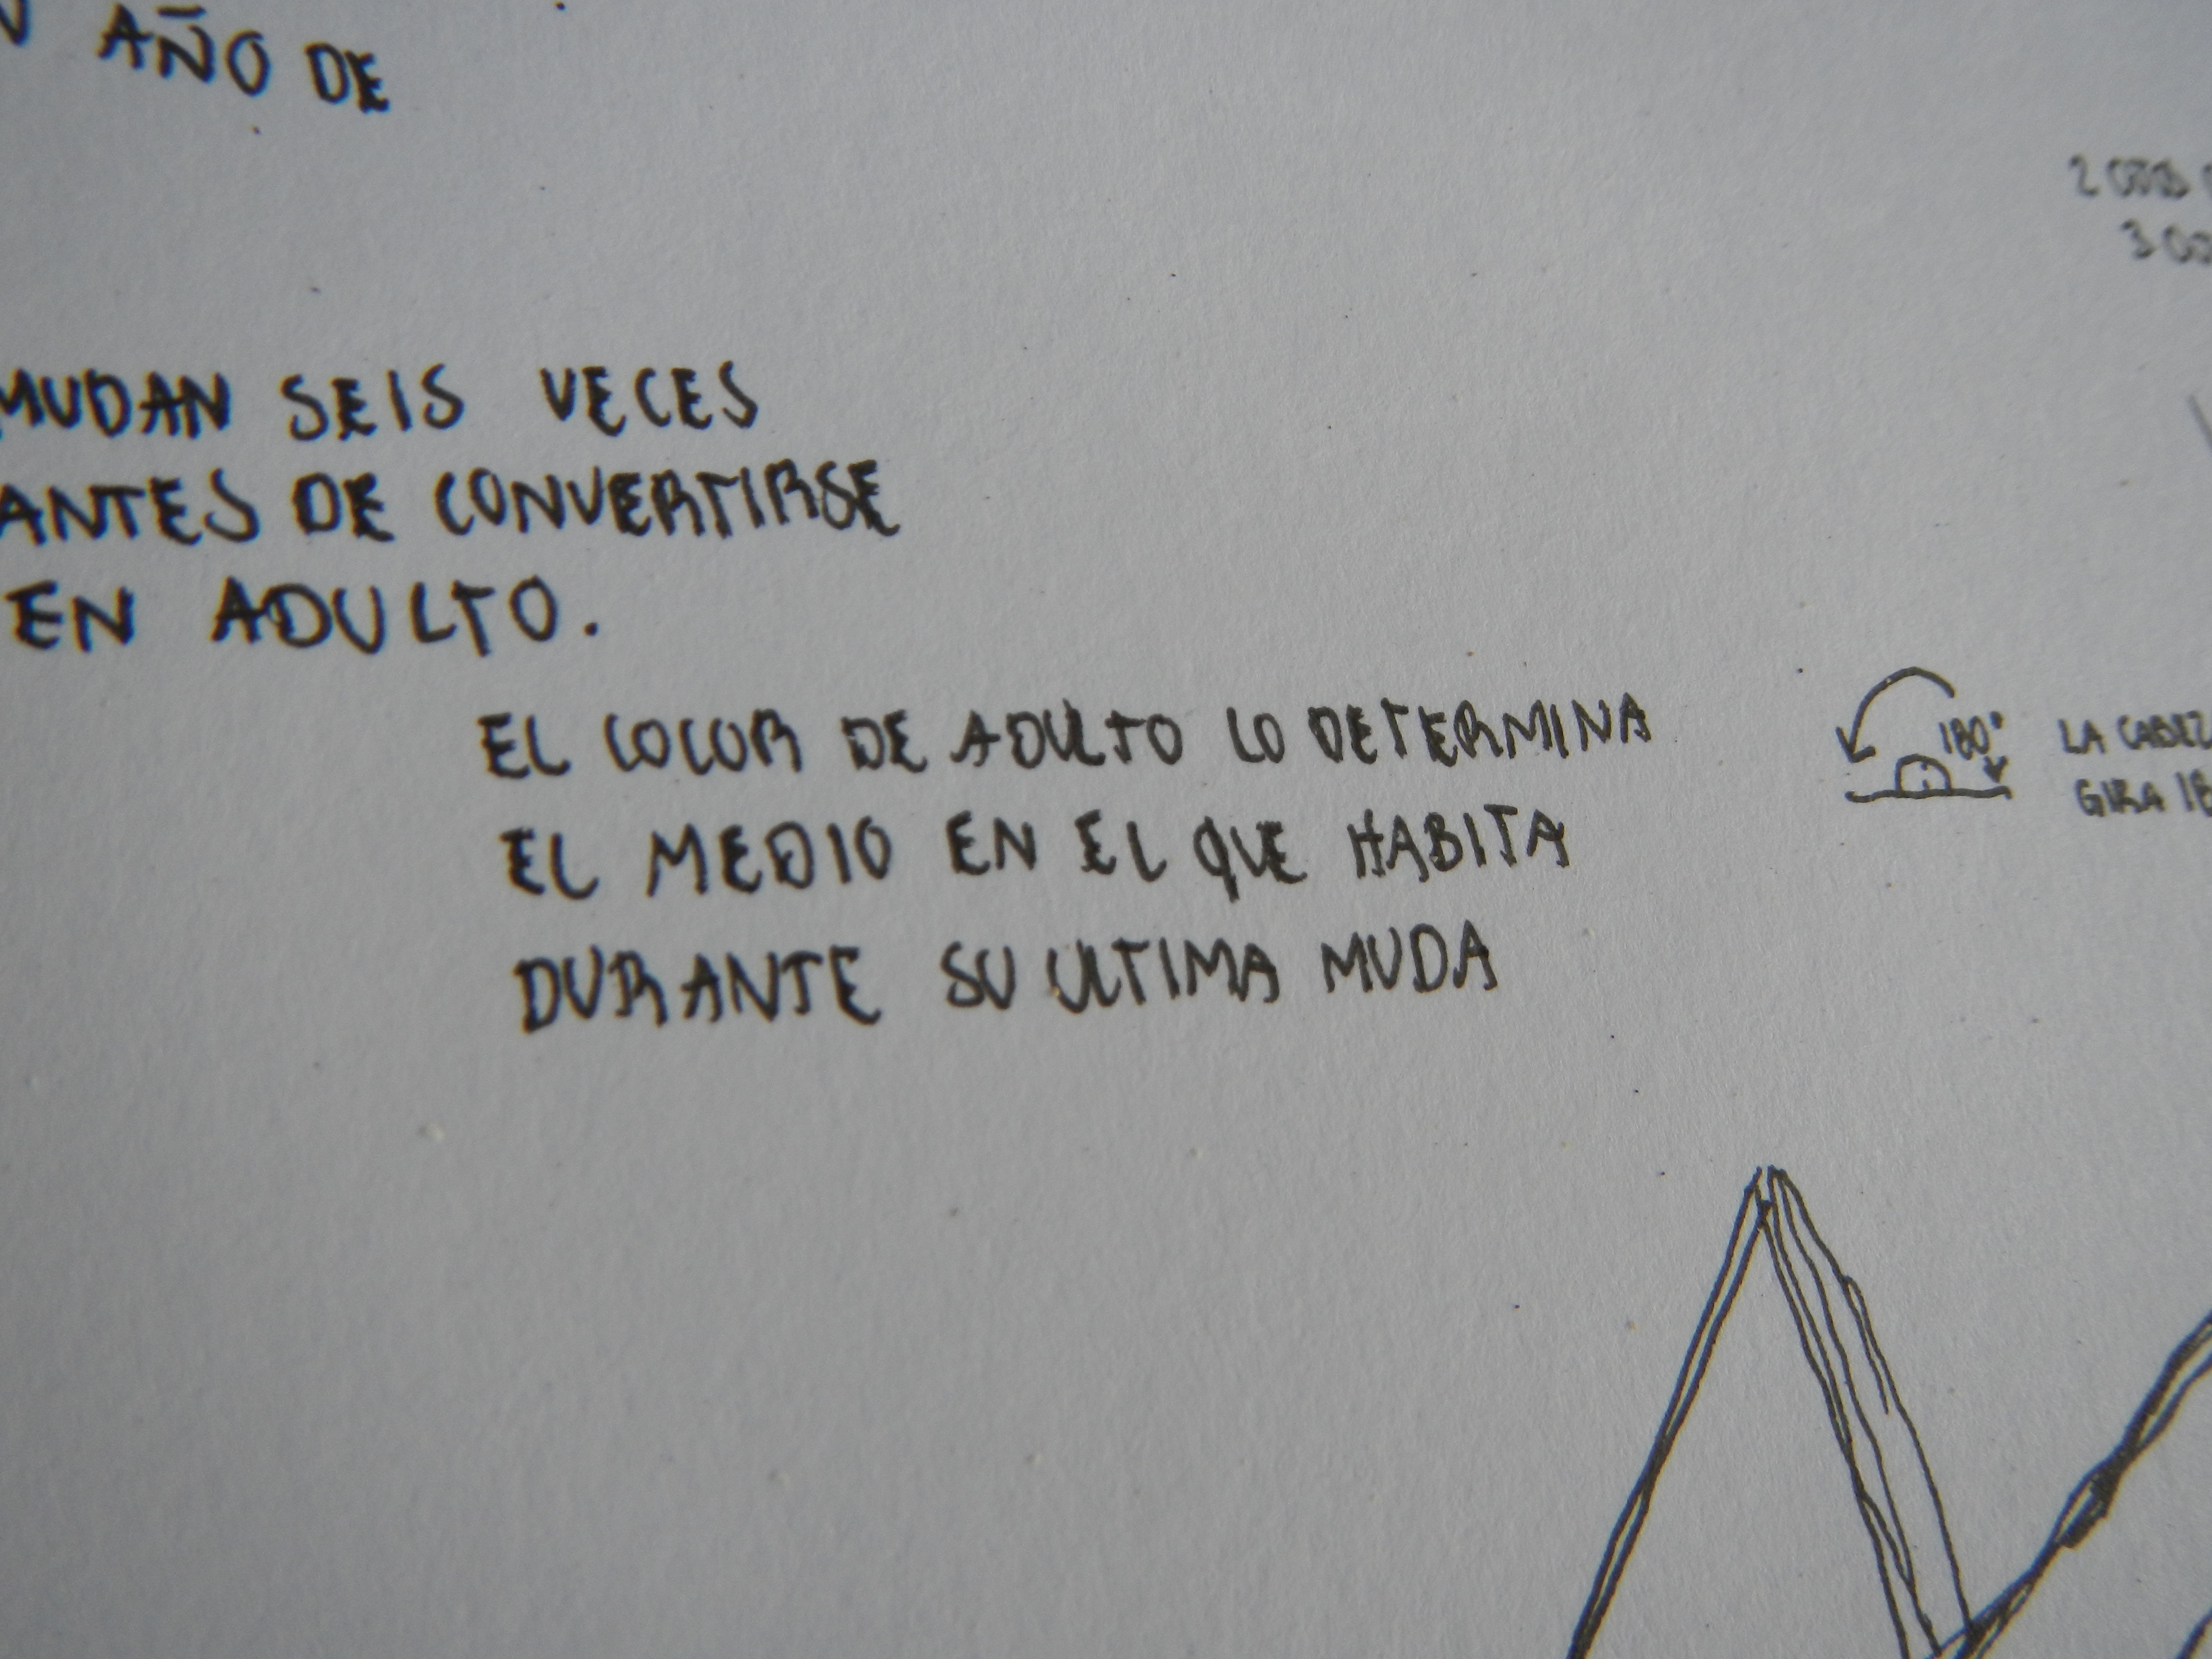 AÑO DE
MUDAN SEIS VECES
ANTES DE CONVERTIRSE
EN ADULTO.
EL COLOR DE ADULTO LO DETERMINA
EL MEDIO EN EL QUE HABITA
DURANTE SU ULTIMA MUDA
180°
LA
GIRA
2
3